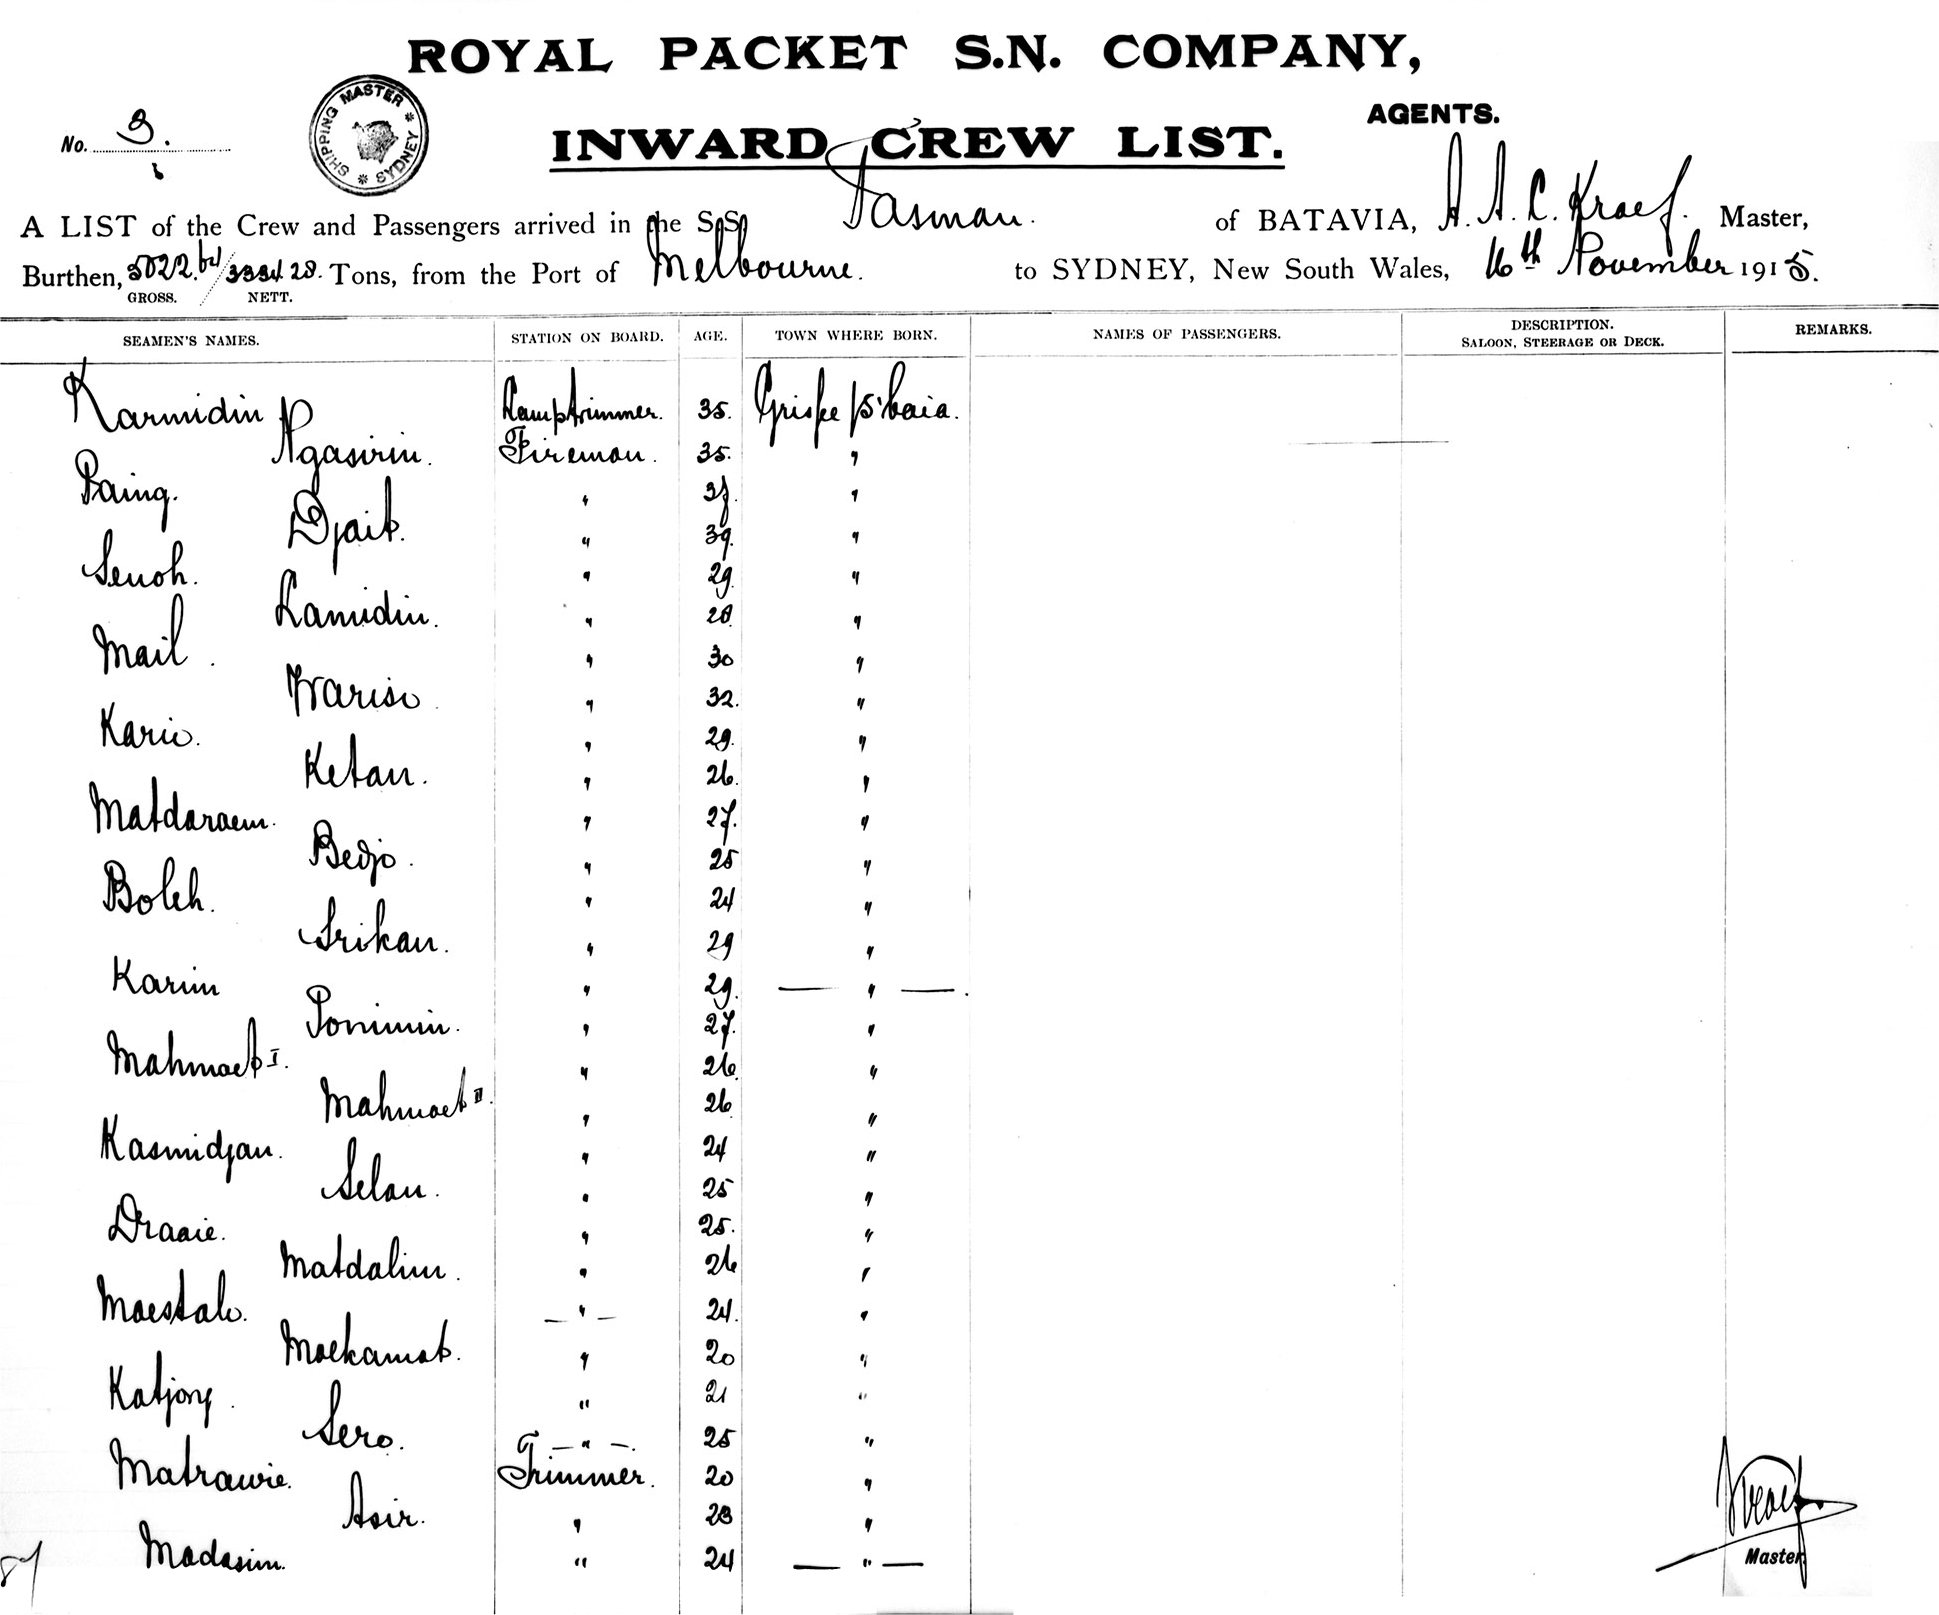 ROYAL PACKET S.N. COMPANY,
AGENTS.
No. 3.
SHIPPING MASTER * SYDNEY *
INWARD CREW LIST.
A LIST of the Crew and Passengers arrived in the S.S. Tasman. of BATAVIA, A. A. C. Kraef. Master,
Burthen, 5022.64/3334.28. Tons, from the Port of Melbourne. to SYDNEY, New South Wales, 16th November 1915.
GROSS. NETT.
SEAMEN'S NAMES. STATION ON BOARD. AGE. TOWN WHERE BORN. NAMES OF PASSENGERS. DESCRIPTION. SALOON, STEERAGE OR DECK. REMARKS.
Karmidin Lamptrimmer. 35. Grisse / S'baia.
Ngasirin. Fireman. 35. "
Paing. " 37. "
Djait. " 39. "
Senoh. " 29. "
Lamidin. " 28. "
Mail. " 30 "
Wariso " 32. "
Kario. " 29. "
Ketan. " 26. "
Matdaraem. " 27. "
Bedjo. " 25 "
Boleh. " 24 "
Srikan. " 29 "
Karim " 29. — " —.
Ponimin. " 27. "
Mahmoet I. " 26. "
Mahmoet II. " 26 "
Kasmidjan. " 24 "
Selan. " 25 "
Draaie. " 25. "
Matdalim. " 26 "
Moestalo. — " — 24. "
Moekamat. " 20 "
Katjong. " 21 "
Sero. — " —. 25 "
Matrawie. Trimmer. 20 "
Asir. " 23 "
Madasim. " 24 — " —
Kraef.
Master